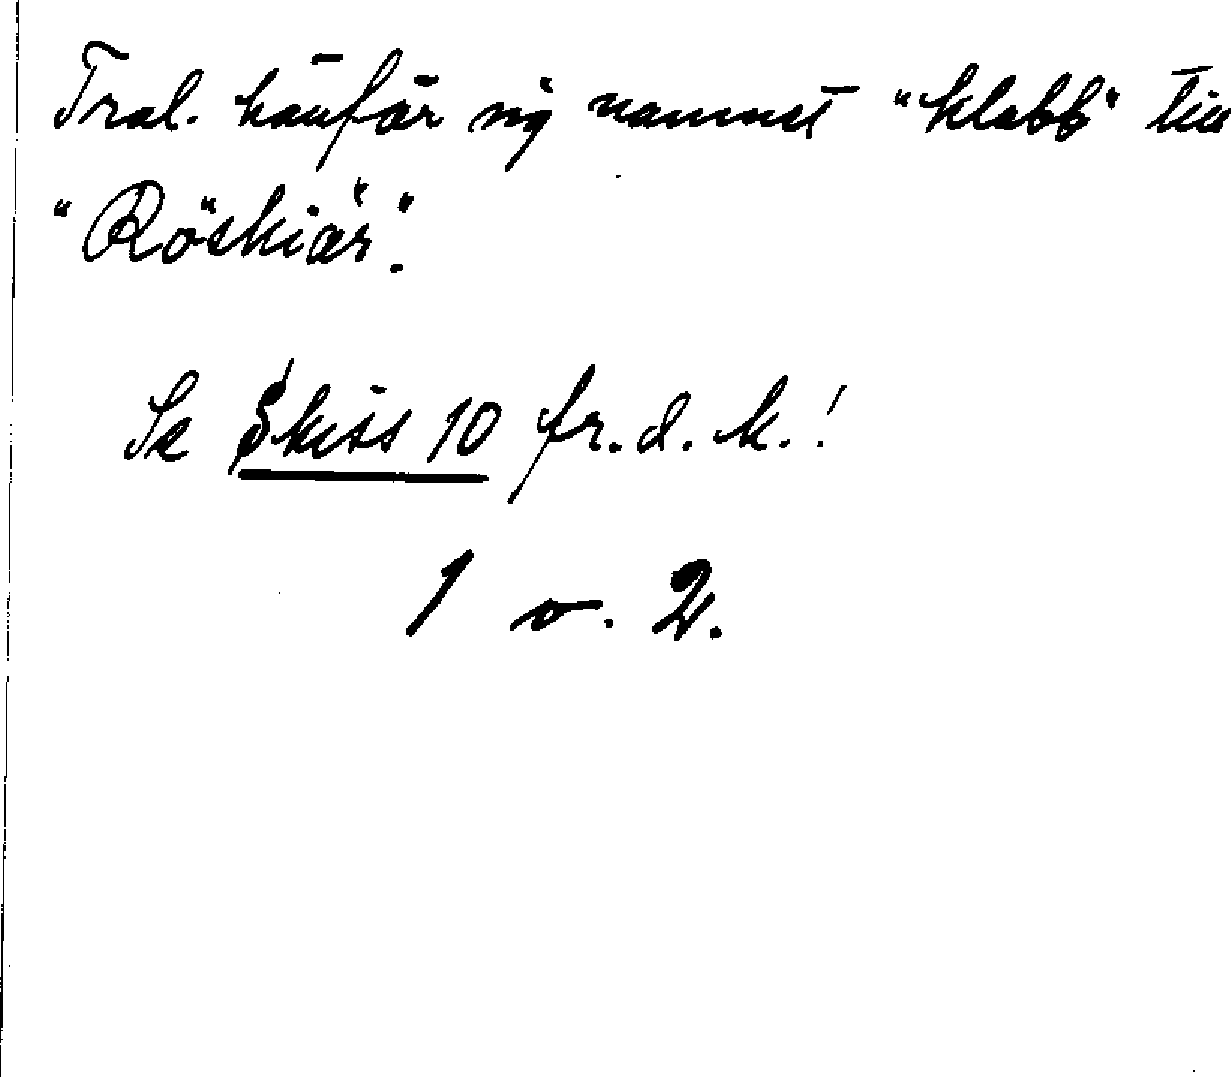 Trol. hänför sig namnet "klabb" till
"Röskiär".
Se Skiss 10 fr. d. k.!
1 o. 2.